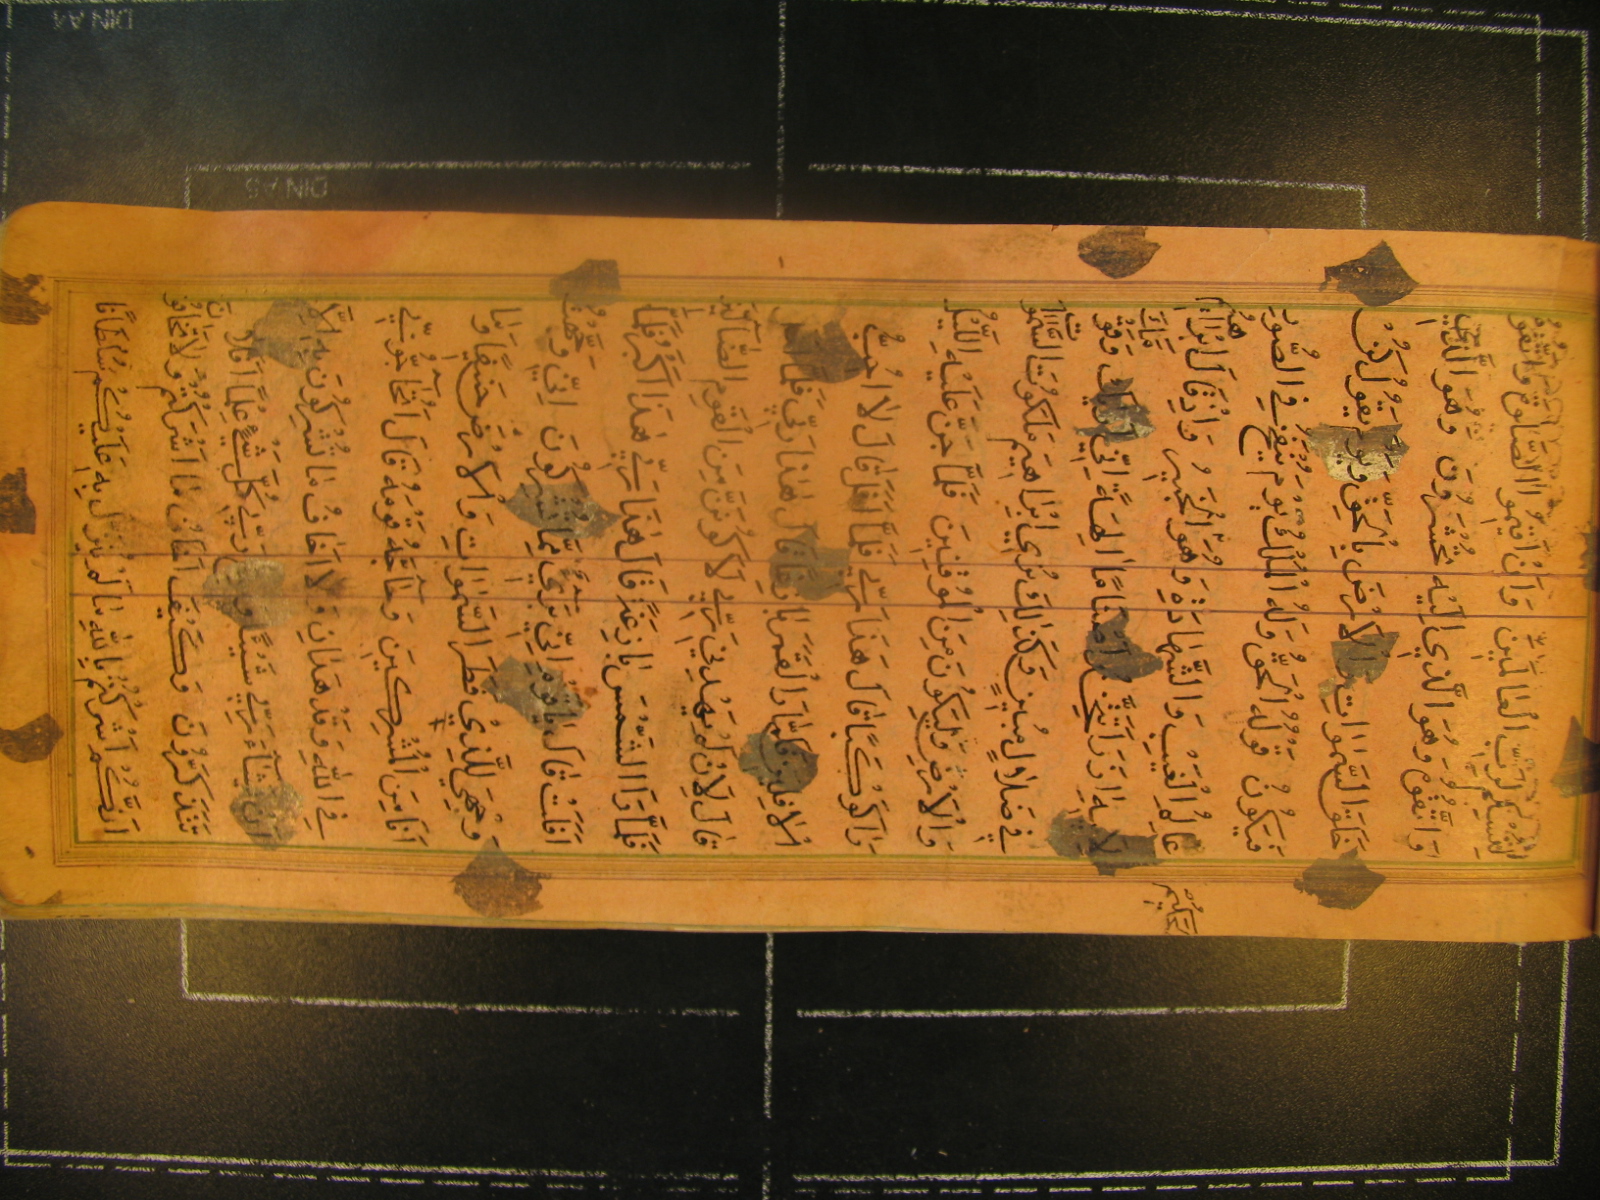 لِنُسْلِمَ لِرَبِّ الْعَالَمِينَ وَاَنْ اَقِيمُوا الصَّلٰوةَ
وَاتَّقُوهُ وَهُوَ الَّذِي اِلَيْهِ تُحْشَرُونَ وَهُوَ الَّذِي
خَلَقَ السَّمٰوَاتِ وَالْاَرْضَ بِالْحَقِّ وَيَوْمَ يَقُولُ كُنْ
فَيَكُونُ قَوْلُهُ الْحَقُّ وَلَهُ الْمُلْكُ يَوْمَ يُنْفَخُ فِي الصُّورِ
عَالِمُ الْغَيْبِ وَالشَّهَادَةِ وَهُوَ الْخَبِيرُ وَاِذْ قَالَ اِبْرَاهِيمُ
الْحَكِيمُ
لِاَبِيهِ اٰزَرَ اَتَتَّخِذُ اَصْنَامًا اٰلِهَةً اِنِّي اَرٰيكَ وَقَوْمَكَ
فِي ضَلَالٍ مُبِينٍ وَكَذٰلِكَ نُرِي اِبْرَاهِيمَ مَلَكُوتَ السَّمٰوَاتِ
وَالْاَرْضِ وَلِيَكُونَ مِنَ الْمُوقِنِينَ فَلَمَّا جَنَّ عَلَيْهِ اللَّيْلُ
رَاٰ كَوْكَبًا قَالَ هٰذَا رَبِّي فَلَمَّا اَفَلَ قَالَ لَا اُحِبُّ
الْاٰفِلِينَ فَلَمَّا رَاَ الْقَمَرَ بَازِغًا قَالَ هٰذَا رَبِّي فَلَمَّا اَفَلَ
قَالَ لَئِنْ لَمْ يَهْدِنِي رَبِّي لَاَكُونَنَّ مِنَ الْقَوْمِ الضَّالِّينَ
فَلَمَّا رَاَ الشَّمْسَ بَازِغَةً قَالَ هٰذَا رَبِّي هٰذَا اَكْبَرُ فَلَمَّا
اَفَلَتْ قَالَ يَاقَوْمِ اِنِّي بَرِيءٌ مِمَّا تُشْرِكُونَ اِنِّي وَجَّهْتُ
وَجْهِيَ لِلَّذِي فَطَرَ السَّمٰوَاتِ وَالْاَرْضَ حَنِيفًا وَمَا
اَنَا مِنَ الْمُشْرِكِينَ وَحَاجَّهُ قَوْمُهُ قَالَ اَتُحَاجُّونِّي
فِي اللّٰهِ وَقَدْ هَدٰانِ وَلَا اَخَافُ مَا تُشْرِكُونَ بِهِ اِلَّا
اَنْ يَشَاءَ رَبِّي شَيْئًا وَسِعَ رَبِّي كُلَّ شَيْءٍ عِلْمًا اَفَلَا
تَتَذَكَّرُونَ وَكَيْفَ اَخَافُ مَا اَشْرَكْتُمْ وَلَا تَخَافُونَ
اَنَّكُمْ اَشْرَكْتُمْ بِاللّٰهِ مَا لَمْ يُنَزِّلْ بِهِ عَلَيْكُمْ سُلْطَانًا
DIN A4
DIN A5